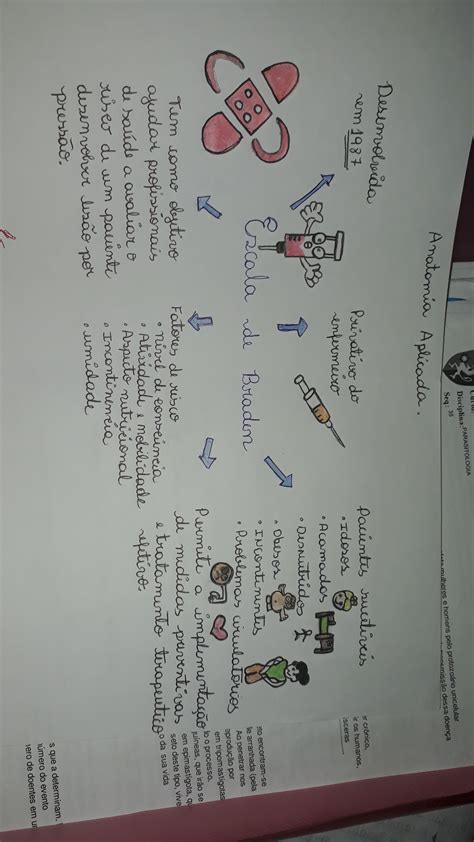 Anatomia Aplicada.
Desenvolvida
em 1987
Privativo do
enfermeiro
Pacientes sucetíveis
• Idosos
• Acamados
• Desnutridos
• Obesos
• Incontinentes
• Problemas circulatórios
Escala de Braden
Tem como objetivo
ajudar profissionais
de saúde a avaliar o
risco de um paciente
desenvolver lesão por
pressão.
Fatores de risco
• nível de consciência
• Atividade e mobilidade
• Aspecto nutricional
• Incontinência
• umidade
Permite a implementação
de medidas preventivas
e tratamento terapeutico
efetivo.
Disciplina: PARASITOLOGIA
Seq.: 35
mulheres e homens pelo protozoário unicelular
dessa doença
crônica,
os humanos,
encontram-se
arranhada (pela
Ao penetrar nos
em tripomastigotas
o processo,
que irão se
em epimastigota,
deste tipo, vive
o da sua vida
s que a determinam.
número do evento
de doentes em